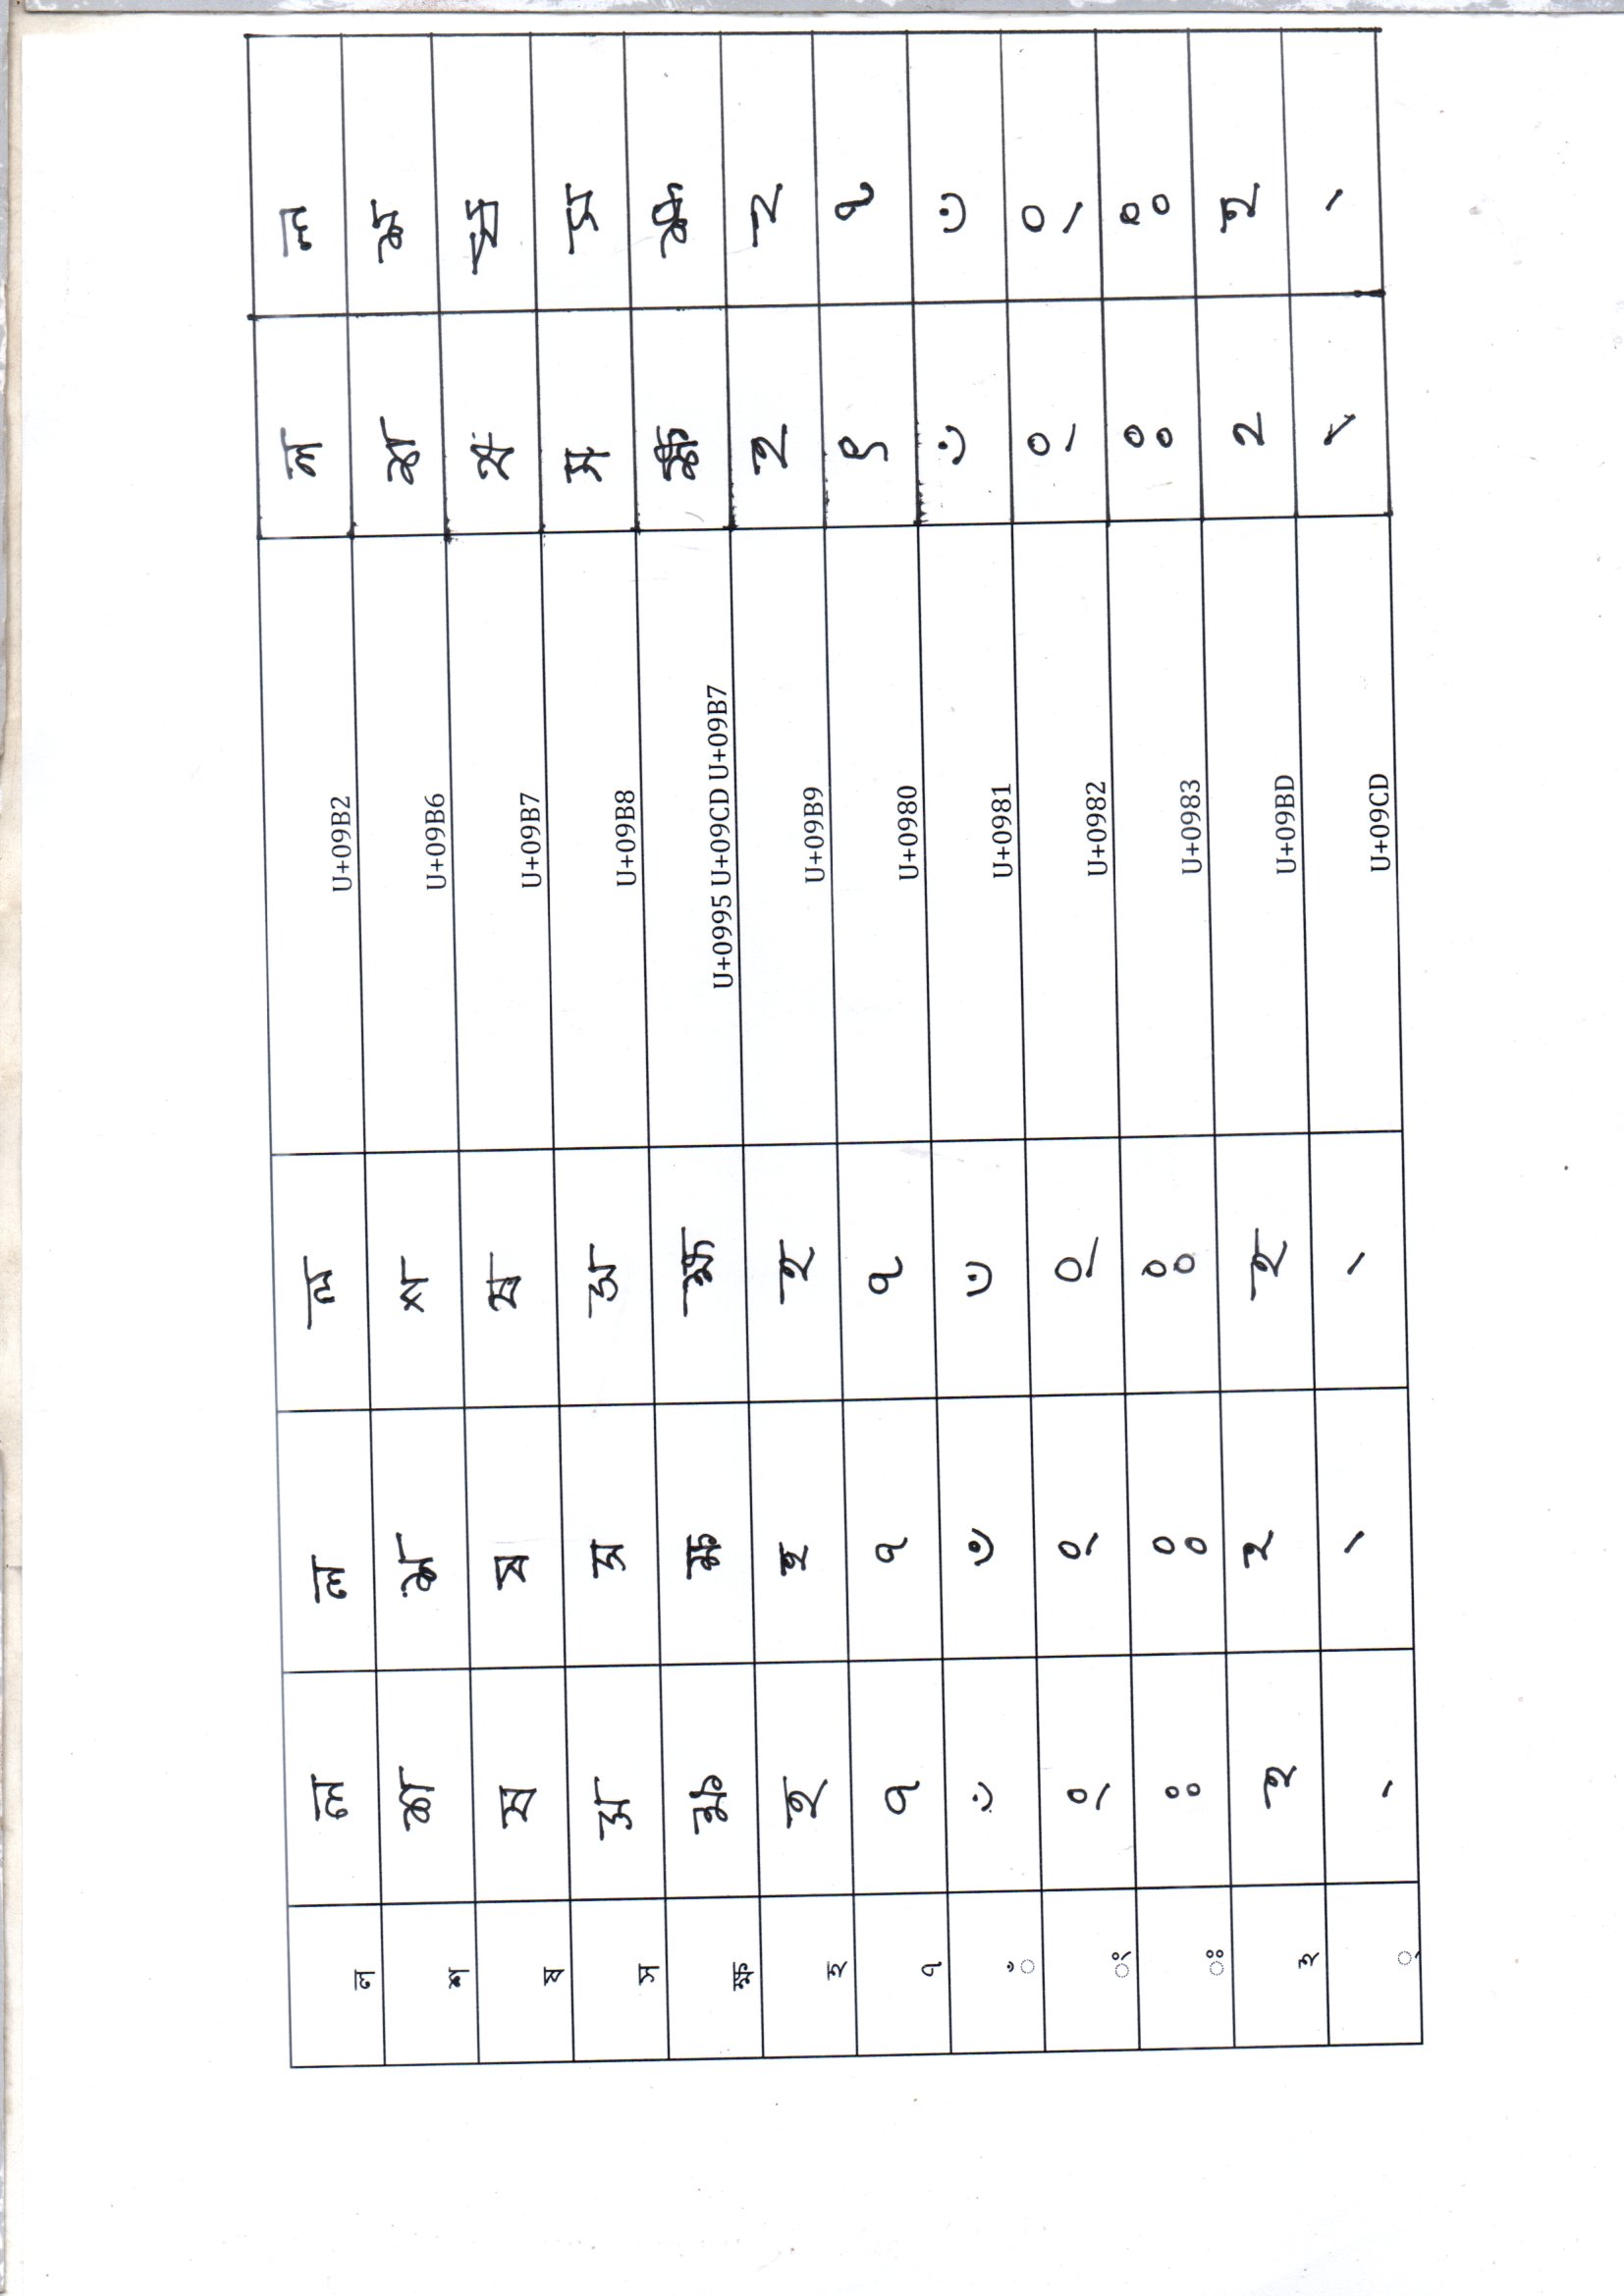 ল ল ল ল U+09B2 ল ল
শ শ শ শ U+09B6 শ শ
ষ ষ ষ ষ U+09B7 ষ ষ
স স স স U+09B8 স স
ক্ষ ক্ষ ক্ষ ক্ষ U+0995 U+09CD U+09B7 ক্ষ ক্ষ
হ হ হ হ U+09B9 হ হ
ঀ ঀ ঀ ঀ U+0980 ঀ ঀ
ঁ ঁ ঁ ঁ U+0981 ঁ ঁ
ং ং ং ং U+0982 ং ং
ঃ ঃ ঃ ঃ U+0983 ঃ ঃ
ঽ ঽ ঽ ঽ U+09BD ঽ ঽ
্ ্ ্ ্ U+09CD ্ ্